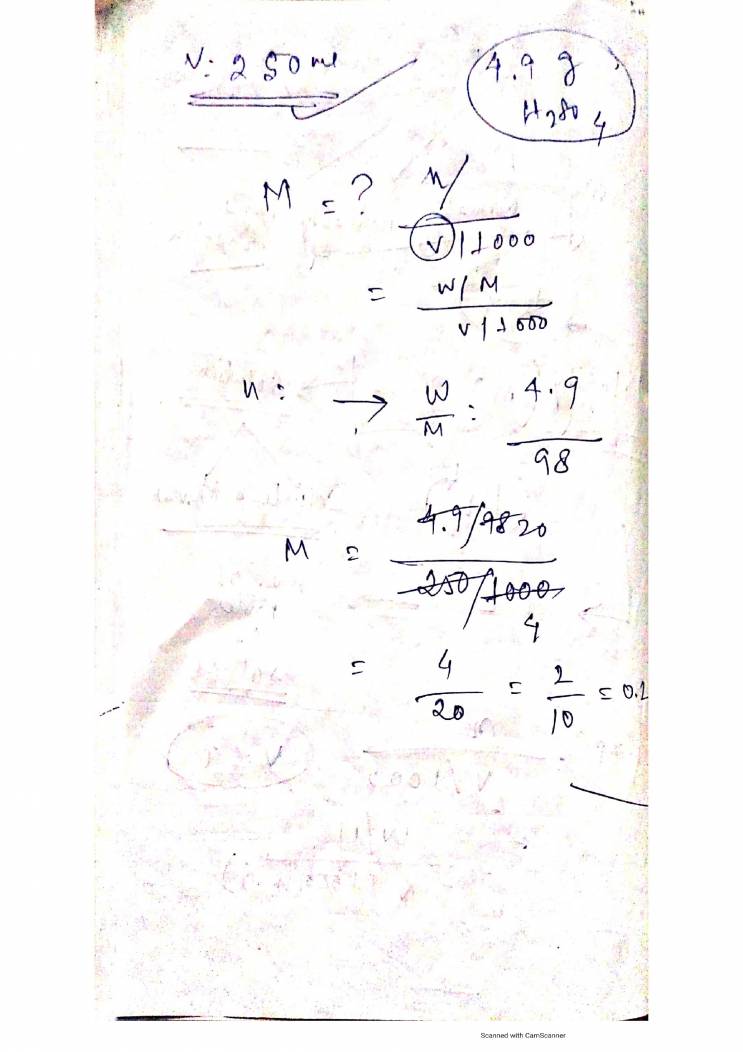 V: 250 ml
4.9 g
H2SO4
M = ? n/
V/1000
= W/M
V/1000
n: → W/M : 4.9
98
M = 4.9/98 20
250/1000
4
= 4/20 = 2/10 = 0.2
Scanned with CamScanner